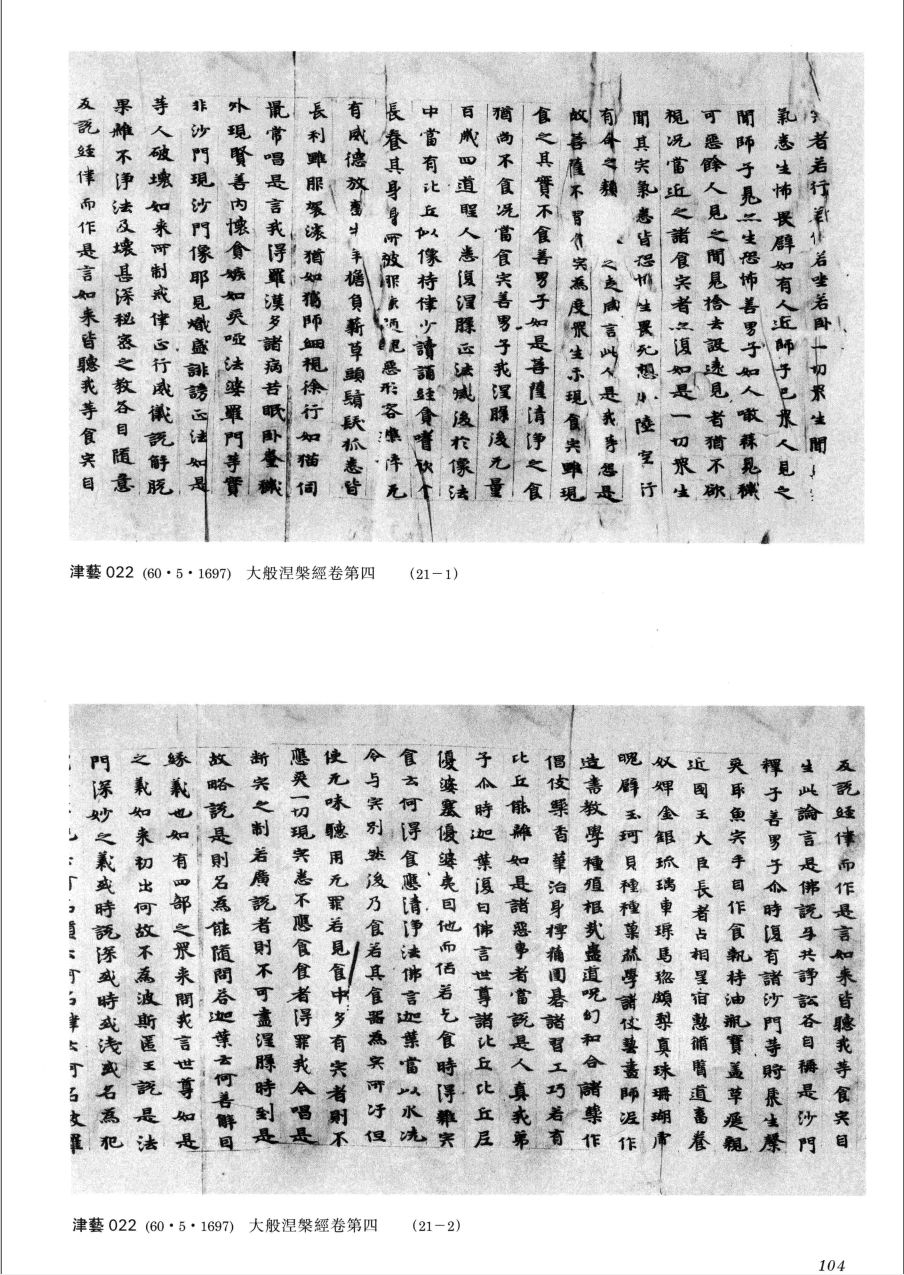 者若行若住若坐若卧一切衆生聞
氣悉生怖畏辟如有人近師子已衆人見之
聞師子臰亦生恐怖善男子如人噉蒜臰穢
可惡餘人見之聞臰捨去設遠見者猶不欲
視况當近之諸食宍者亦復如是一切衆生
聞其宍氣悉皆恐怖生畏死想水陸空行
有命之類之走咸言此人是我等怨是
故菩薩不習食宍為度衆生示現食宍雖現
食之其實不食善男子如是菩薩清淨之食
猶尚不食况當食宍善男子我涅槃後无量
百歲四道聖人悉復涅槃正法滅後於像法
中當有比丘似像持律少讀誦經貪嗜飲食
長養其身身所被服麁陋醜惡形容憔悴无
有威德放畜牛羊擔負薪草頭鬚髮抓悉皆
長利雖服袈裟猶如獵師細視徐行如猫伺
鼠常唱是言我得羅漢多諸病苦眠卧糞穢
外現賢善內懷貪嫉如受啞法婆羅門等實
非沙門現沙門像耶見熾盛誹謗正法如是
等人破壞如来所制戒律正行威儀說解脫
果離不淨法及壞甚深秘密之教各自隨意
反說經律而作是言如来皆聽我等食宍自
津藝022 (60・5・1697) 大般涅槃經卷第四 (21-1)
反說經律而作是言如来皆聽我等食宍自
生此論言是佛說互共諍訟各自稱是沙門
釋子善男子尒時復有諸沙門等貯聚生槃
受取魚宍手自作食執持油瓶寶盖草屣親
近國王大臣長者占相星宿懃脩醫道畜養
奴婢金銀琉璃車璖馬瑙頗梨真珠珊瑚虎
魄辟玉珂貝種種菓蓏學諸伎藝畫師泥作
造書教學種殖根栽蠱道呪幻和合諸藥作
倡伎樂香華治身摴蒱圍碁諸習工巧若有
比丘能離如是諸惡事者當說是人真我弟
子尒時迦葉復白佛言世尊諸比丘比丘尼
優婆塞優婆夷因他而活若乞食時得雜宍
食云何得食應清淨法佛言迦葉當以水洗
令与宍別然後乃食若其食器為宍所汙但
使无味聽用无罪若見食中多有宍者則不
應受一切現宍悉不應食食者得罪我今唱是
断宍之制若廣說者則不可盡涅槃時到是
故略說是則名為能隨問荅迦葉云何善解因
緣義也如有四部之衆来問我言世尊如是
之義如来初出何故不為波斯匿王說是法
門深妙之義或時說深或時或淺或名為犯
津藝022 (60・5・1697) 大般涅槃經卷第四 (21-2)
104